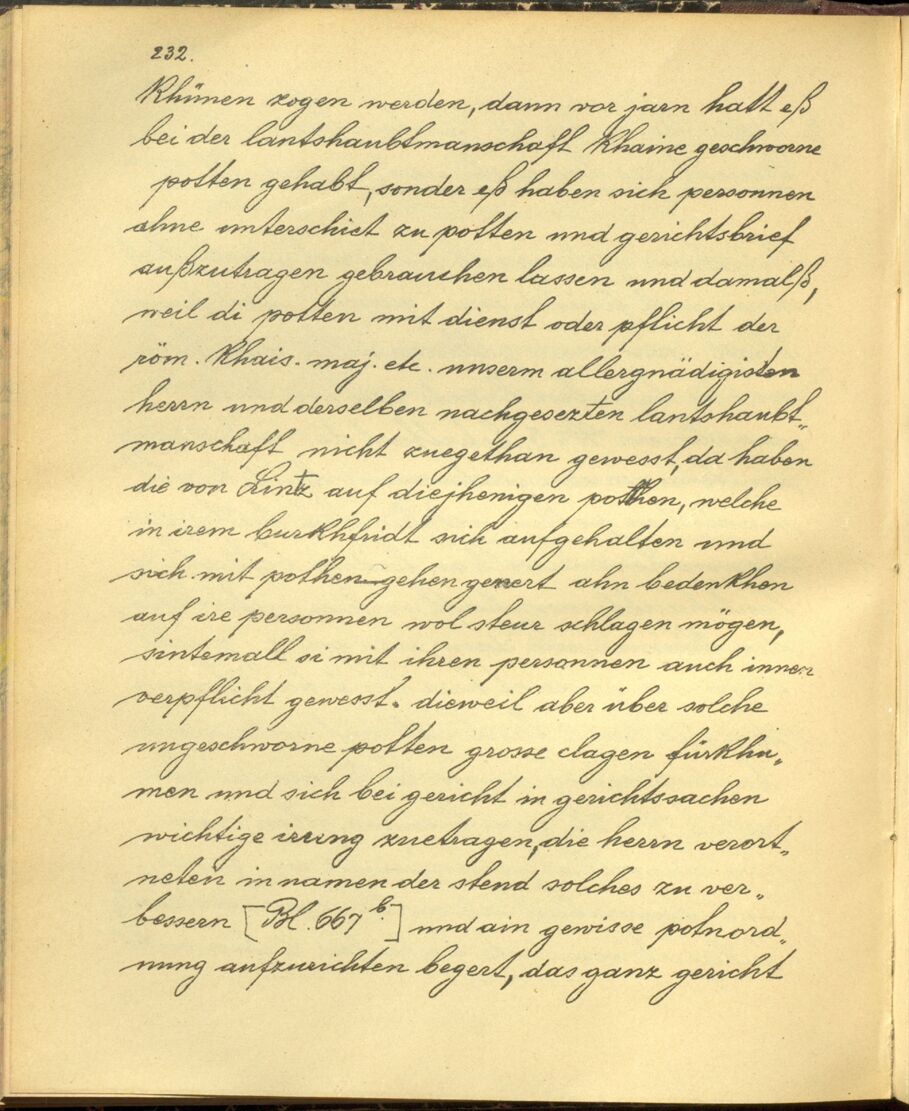 232.
Khünen zogen werden, dann vor jarn hatt eß
bei der lantshaubtmanschaft Khaine geschworne
potten gehabt, sonder eß haben sich personnen
ahne unterschiet zu potten und gerichtsbrief
außzutragen gebrauchen lassen und damalß,
weil di potten mit dienst oder pflicht der
röm. Khais. maj. etc. unserm allergnädigisten
herrn und derselben nachgesezten lantshaubt„
manschaft nicht zuegethan gewesst, da haben
die von Lintz auf diejhenigen pothen, welche
in irem burkhfridt sich aufgehalten und
sich mit pothen gehen genert ahn bedenkhen
auf ire personnen wol steur schlagen mögen,
sintemall si mit ihren personnen auch innen
verpflicht gewesst. dieweil aber über solche
ungeschworne potten grosse clagen fürkhu„
men und sich bei gericht in gerichtssachen
wichtige irrung zuetragen, die herrn verort„
neten in namen der stend solches zu ver„
bessern [Bl. 667 b.] und ain gewisse potnord„
nung aufzurichten begert, das ganz gericht